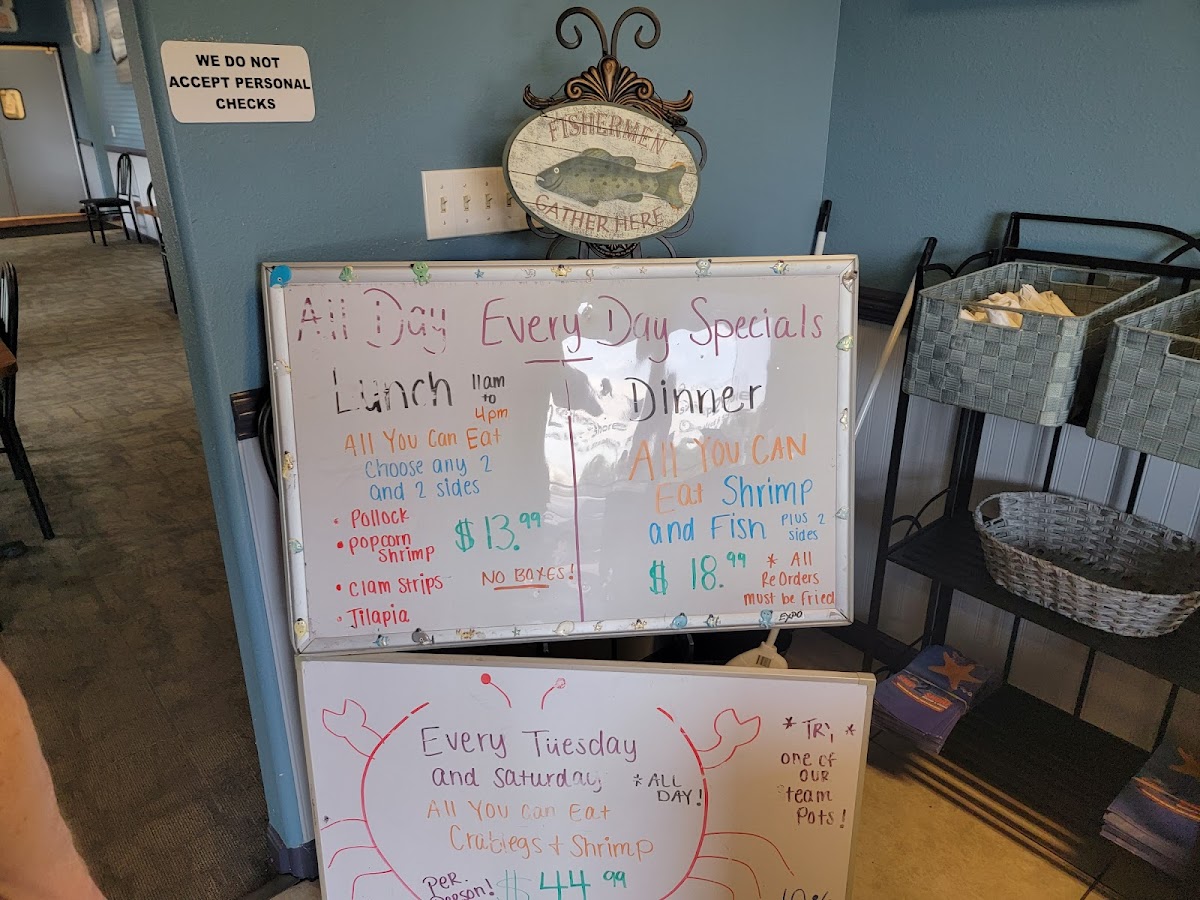 WE DO NOT
ACCEPT PERSONAL
CHECKS
FISHERMEN
GATHER HERE
All Day Every Day Specials
Lunch 11am
to
4pm
All You Can Eat
Choose any 2
and 2 sides
• Pollock
• Popcorn
Shrimp
• Clam Strips
• Tilapia
$13.99
NO BOXES!
Dinner
All You CAN
Eat Shrimp
and Fish Plus 2
sides
$18.99
* All
ReOrders
must be Fried
EXPO
Every Tuesday
and Saturday
* ALL
DAY!
All You Can Eat
Crablegs + Shrimp
Per
Person!
$44.99
* Try *
one of
our
Steam
Pots!